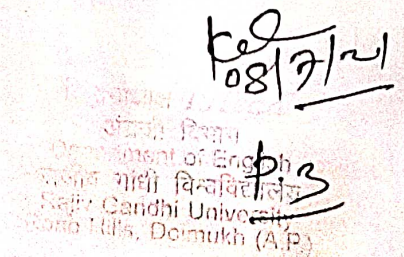 08/7/21
विभागाध्यक्ष
अंग्रेजी विभाग
Department of English
राजीव गांधी विश्वविद्यालय
Rajiv Gandhi University
Rono Hills, Doimukh (A.P.)
P.3